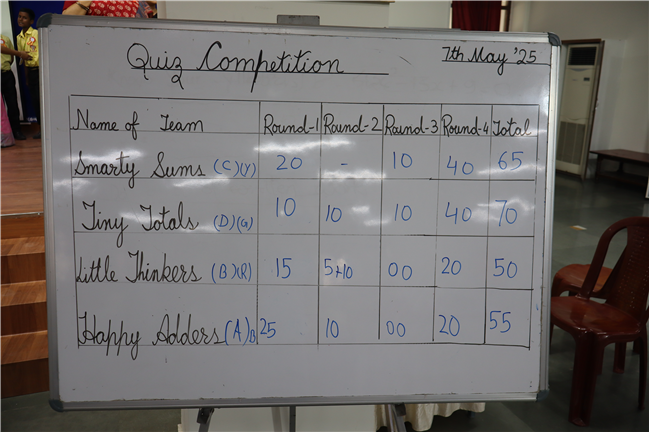 Quiz Competition 7th May '25
Name of Team Round-1 Round-2 Round-3 Round-4 Total
Smarty Sums (C)(Y) 20 - 10 40 65
Tiny Totals (D)(G) 10 10 10 40 70
Little Thinkers (B)(R) 15 5+10 00 20 50
Happy Adders (A)B 25 10 00 20 55